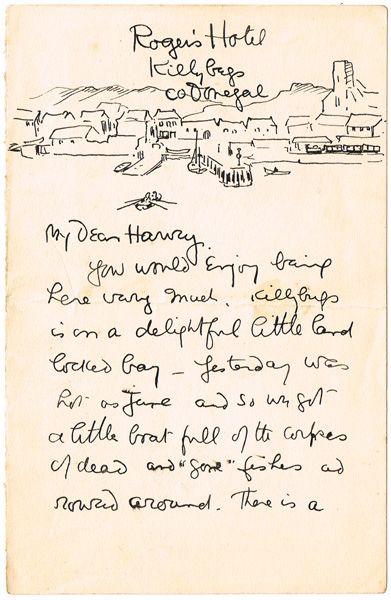 Roger's Hotel
Killybegs
co Donegal
My Dear Harvey,
You would enjoy being
here very much. Killybegs
is on a delightful little land
locked bay – Yesterday was
hot as June and so we got
a little boat full of the corpses
of dead and "gone" fishes ad
rowed around. There is a